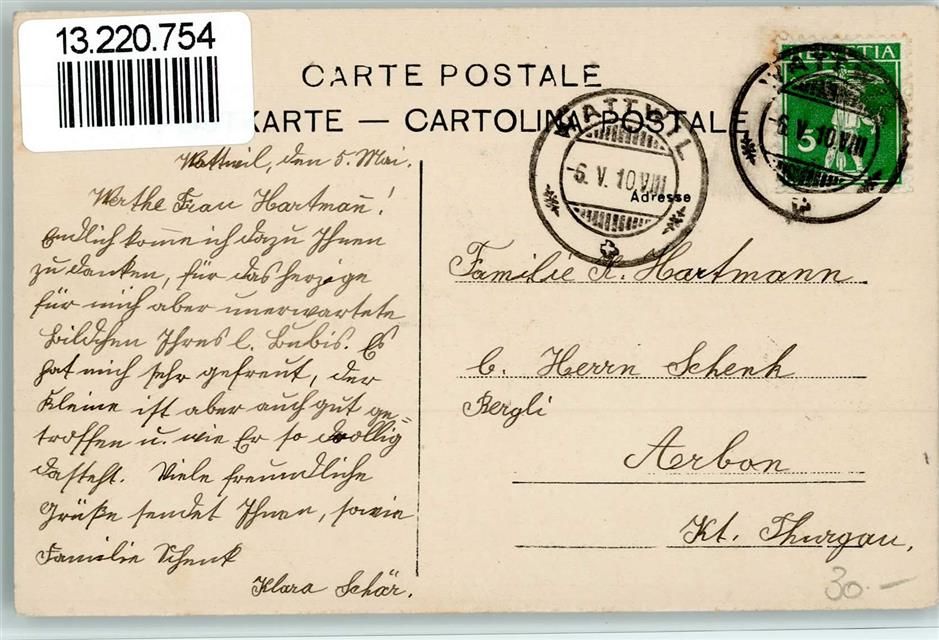 13.220.754
CARTE POSTALE
KARTE — CARTOLINA POSTALE
HELVETIA
5
WATTWIL
-6. V. 10.VIII
WATTWIL
V. 10.VIII
Adresse
Wattwil, den 5. Mai.
Werthe Frau Hartmañ!
Endlich kom̄e ich dazu Ihnen
zu danken, für das herzige
für mich aber unerwartete
Bildchen Ihres l. Bubis. Es
hat mich sehr gefreut, der
Kleine ist aber auch gut ge=
troffen u. wie Er so drollig
dasteht. Viele freundliche
Grüße sendet Ihnen, sowie
Familie Schenk
Klara Schär.
Familie K. Hartmann
b. Herrn Schenk
Bergli
Arbon
Kt. Thurgau.
30.—